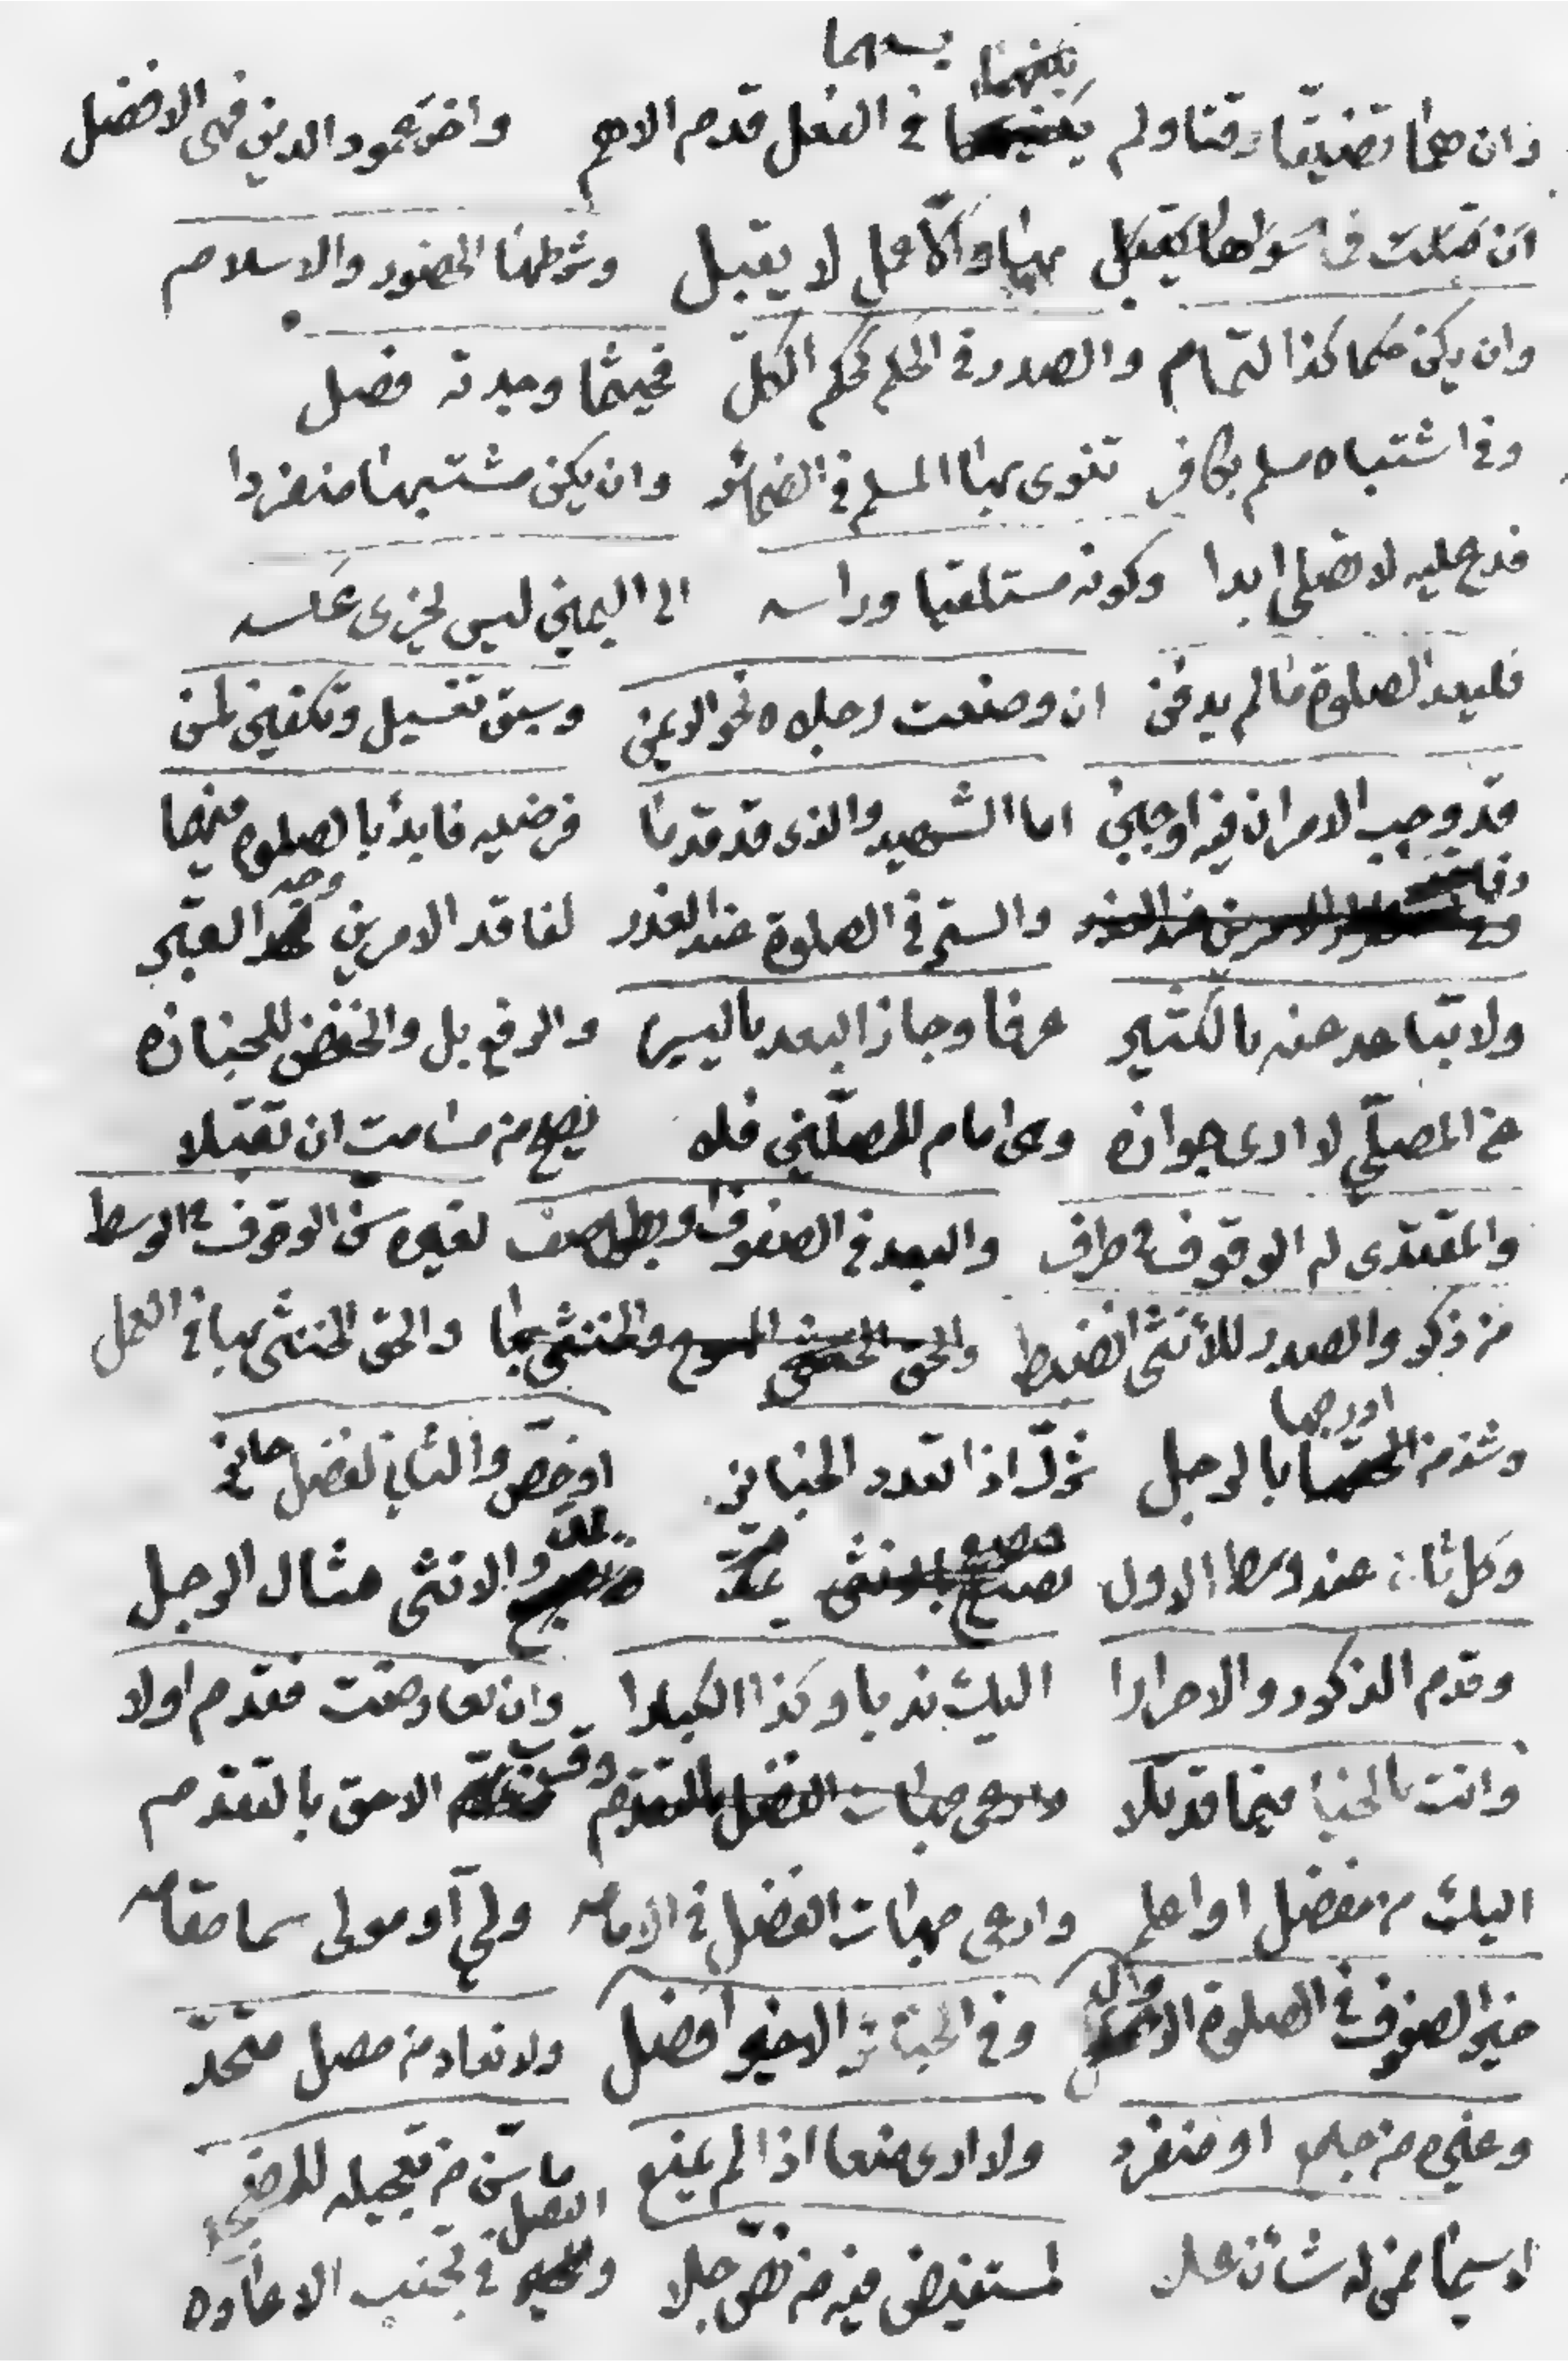 يسعهما
وان هما تضيقا وقتا ولم في الفعل قدم الاهم واخت عمود الدين فهي الافضل
ان قبلت في سواها يقبل بها والا عمل لا يقبل وشرطها الحضور والاسلام
وان يكن حكما كذا التمام والصدر في الحكم كحكم الكل فحيثما وجدته فصل
وفي اشتباه مسلم بكافر تنوى بها المسلم في الضمائر وان يكن مشتبها منفردا
فدع عليه لا تصلي ابدا وكونه مستلقيا وراسه الى اليمين ليس يجزي عكسه
فليعد الصلوة ما لم يدفن ان وضعت رجلاه نحو الايمن وسبق تغسيل وتكفين لمن
قد وجب الامران فيه اوجبن اما الشهيد والذي قد قدما فرضيه فابدأ بالصلوة منهما
والستر في الصلوة عند العذر لفاقد الامرين وجه القبر
ولا تباعد عنه بالكثير عرفا وجاز البعد باليسير والرفع بل والخفض للجنازه
عن المصلي لا ارى جوازه ومن امام للمصلين فلا يصح من مسامت ان تقبلا
والمقتدي له الوقوف في طرف والبعد في الصفوف او بطول صف لغيره سن الوقوف في الوسط
من ذكر والصدر للأنثى انضبط والحق الخنثى بها في العمل
اورجها
وشذ من بالرجل ثم اذا تعدد الجنائز او خص والثاني لفضل حائز
وكل ثان عند وسط الاول والانثى مثال الرجل
وقدم الذكور والاحرارا اليك ندبا وكذا الكبارا وان تعارضت فقدم اولا
وانت بالخيار فيما قد تلا وقس الاحق بالتقدم
اليك من مفضل او اعلم وارعى جهات الفضل في الامامه ولي او مولى سما مقامه
خير الصفوف في الصلوة الاول وفي الجنائز الاخير افضل ولا تعاد من مصل متحد
وغيره من جامع او منفرد ولا ارى منعا اذا لم يمنع ما سن من تعجيله للمضجع
لا سيما فمن له شأن علا لمستفيض فيه من نص جلا والفصل في تجنب الاعاده